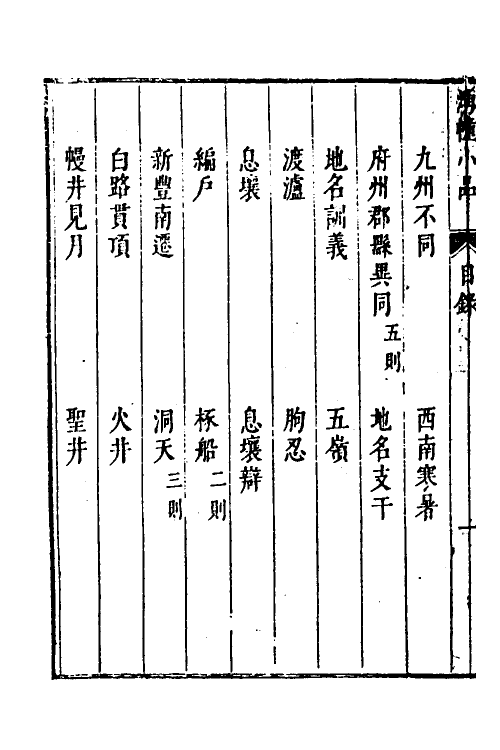 湧幢小品
目錄
九州不同　西南寒暑
府州郡縣異同五則　地名支干
地名訓義　五嶺
渡瀘　朐忍
息壤　息壤辯
編戶　㭬船二則
新豐南遷　洞天三則
白路貫項　火井
幔井見月　聖井